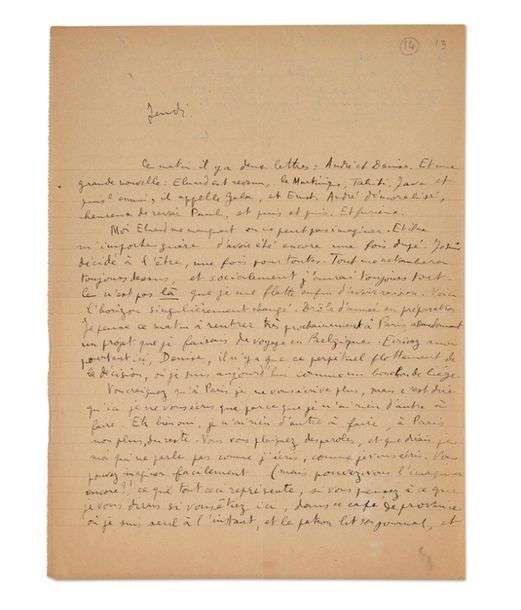 14 13
Jeudi
Ce matin il y a deux lettres : André et Denise. Et une
grande nouvelle : Eluard est revenu, la Martinique, Tahiti, Java et
puis l'ennui, il appelle Gala, et Ernst. André démoralisé,
heureux de revoir Paul, et puis et puis. Et furieux.
Moi Eluard on ne peut pas imaginer. Et il ne
m'importe guère d'avoir été encore une fois dupé. J'étais
décidé à l'être, une fois pour toutes. Tout me retombera
toujours dessus, et socialement j'aurai toujours tort
Ce n'est pas là que je me flatte enfin d'avoir raison. Voici
l'horizon singulièrement changé. Drôle d'année en préparation.
Je pense ce matin à rentrer très prochainement à Paris abandonnant
un projet que je faisais de voyage en Belgique. Ecrivez-moi
pourtant ici, Denise, il n'y a que ce perpétuel flottement de
la décision, où je suis aujourd'hui comme un bouchon de liège.
Vous craignez qu'à Paris je ne vous écrive plus, mais c'est dire
qu'ici je ne vous écris que parce que je n'ai rien d'autre à
faire. Eh bien oui, je n'ai rien d'autre à faire, à Paris
non plus, du reste. Vous vous plaignez des paroles, et que dirais-je
moi qui ne parle pas comme j'écris, comme je vous écris. Vous
pouvez imaginer facilement (mais pouvez-vous l'imaginer
encore?) ce que tout cela représente, si vous pensez à ce que
je vous dirais si vous étiez ici, dans ce café de province
où je suis seul à l'instant, et le patron lit son journal, et